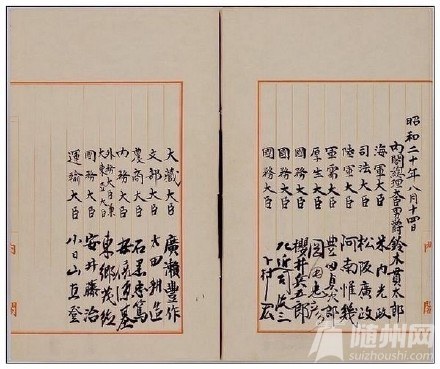 昭和二十年八月十四日
内閣總理大臣男爵 鈴木貫太郎
海軍大臣 米内光政
司法大臣 松阪廣政
陸軍大臣 阿南惟幾
軍需大臣 豊田貞次郎
厚生大臣 岡田忠彦
國務大臣 櫻井兵五郎
國務大臣 左近司政三
國務大臣 下村宏
大藏大臣 廣瀬豊作
文部大臣 太田耕造
農商大臣 石黒忠篤
内務大臣 安倍源基
外務大臣兼大東亞大臣 東郷茂徳
國務大臣 安井藤治
運輸大臣 小日山直登
随州网
suizhoushi.com